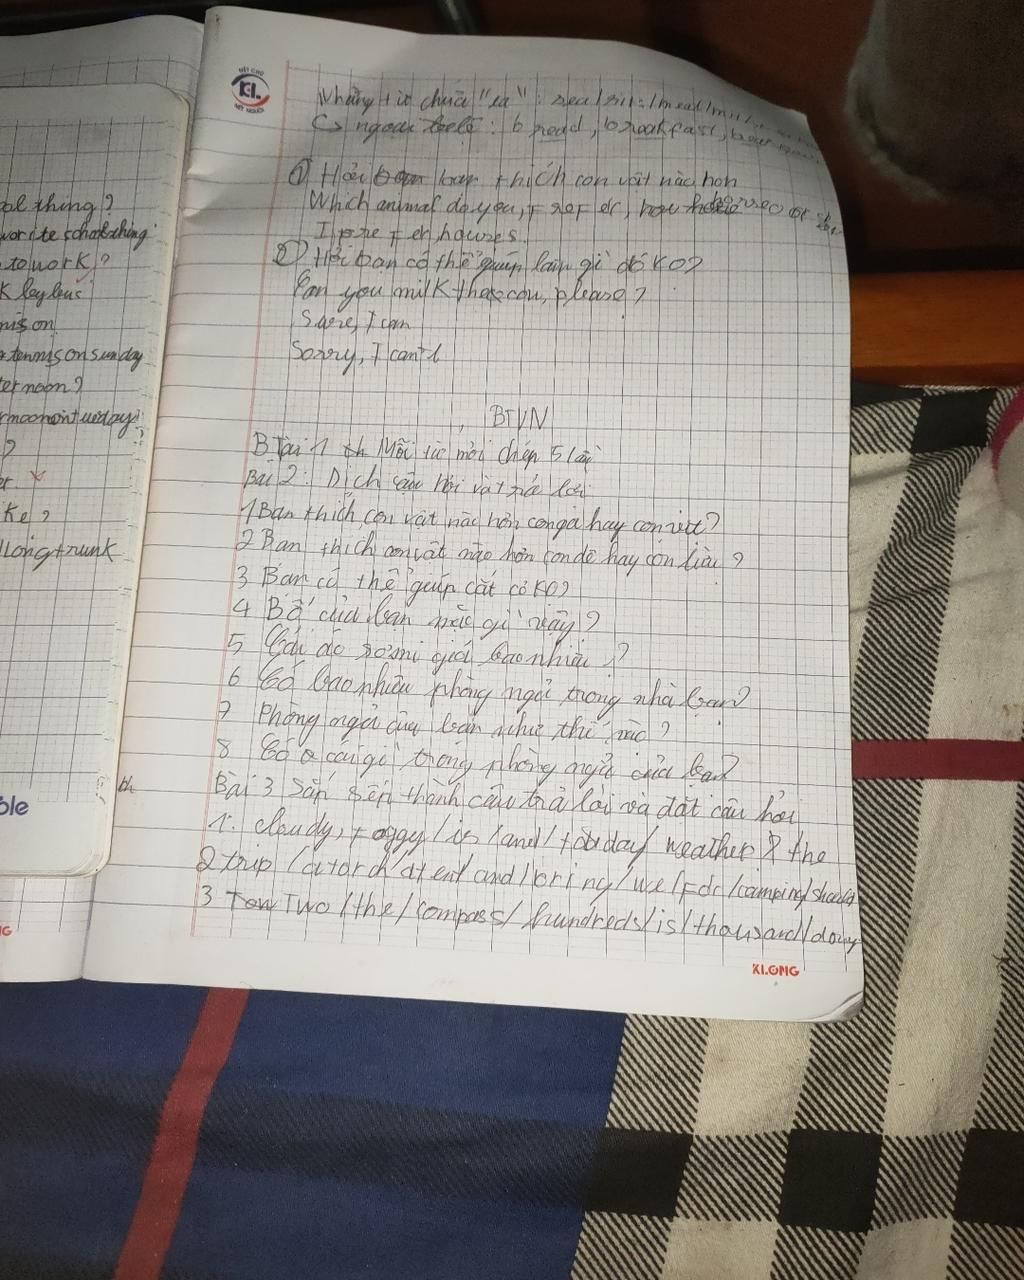 ool thing?
vorite schoolthing
to work?
K by bus
nis on
tennis on sunday
ter noon?
?
er
ike?
Long trunk
ble
NÉT CHỮ
KL
NẾT NGƯỜI
Những từ chứa "ea" : meal
ngoại : bread, breakfast,
① Hỏi bạn thích con vật nào hơn
Which animal do you, prefer, or
I prefer houses.
② Hỏi bạn có thể giúp làm gì đó KO?
Can you milk the cow, please?
Sure, I can
Sorry, I can't
BTVN
Bài 1 Mỗi từ mới chép 5 lần
Bài 2: Dịch câu hỏi và trả lời
1 Bạn thích con vật nào hơn con gà hay con vịt?
2 Bạn thích con vật nào hơn con dê hay con lừa?
3 Bạn có thể giúp cắt cỏ KO?
4 Bố của bạn mặc gì vậy?
5 Cái áo sơ mi giá bao nhiêu?
6 Có bao nhiêu phòng ngủ trong nhà bạn?
7 Phòng ngủ của bạn như thế nào?
8 Có cái gì trong phòng ngủ của bạn?
th
Bài 3 Sắp sếp thành câu trả lời và đặt câu hỏi
1: cloudy, foggy/is/and/today/weather/the
2 trip/a torch/a tent and/bring/we/For/camping/should
3 Two/the/compass/hundreds/is/thousand/dong
KLONG